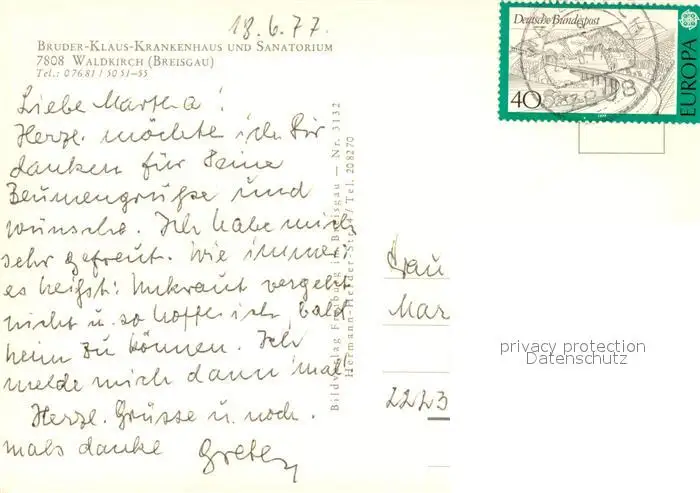 18.6.77.
BRUDER-KLAUS-KRANKENHAUS UND SANATORIUM
7808 WALDKIRCH (BREISGAU)
Tel.: 07681/5051-55
Liebe Martha!
Herzl. möchte ich Dir
danken für Deine
Blumengrüße und
wünsche. Ich habe mich
sehr gefreut. Wie immer
es heißt: Unkraut vergeht
nicht u. so hoffe ich, bald
heim zu können. Ich
melde mich dann 'mal
Herzl. Grüsse u. noch-
mals danke Gretel
Bildverlag Freiburg im Breisgau — Nr. 3132
Hermann-Herder-Str. 4 / Tel. 208270
Deutsche Bundespost
40
EUROPA
Frau
Mar
privacy protection
Datenschutz